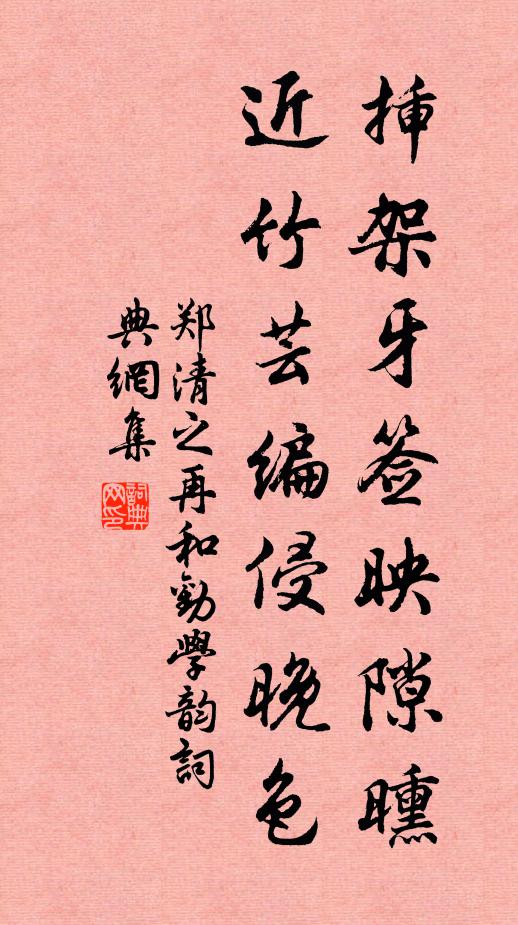 挿架牙签映隙曛
近竹芸编侵晚色
郑清之再和劝学韵詞
典網集
詞典网印